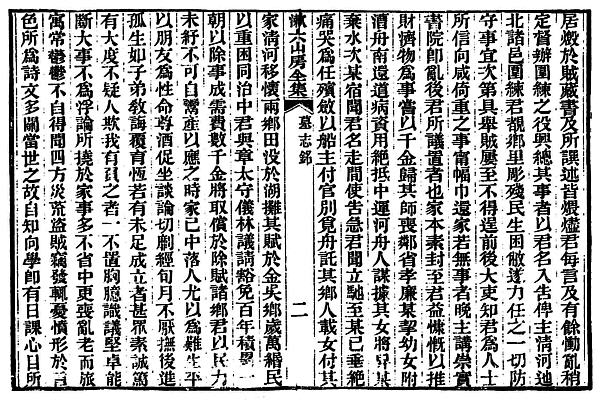 居燬於賊藏書及所譔述皆煨燼君每言及有餘慟亂稍
定督辦團練之役興總其事者以君名入告俾主清河迤
北諸邑團練君覩鄉里彫殘民生困敝遂力任之一切防
守事宜次第具舉賊屢至不得逞前後大吏知君爲人士
所信向咸倚重之事甯幅巾還家若無事者晚主講崇實
書院卽亂後君所議置者也家本素封至君益慷慨以推
財濟物爲事嘗以千金歸某師喪鄰省孝廉某挈幼女附
酒舟南還道病資用絶抵中運河舟人謀據其女將舁某
棄水次某宿聞君名走間使告急君聞立馳至某已垂絶
痛哭爲任殯斂以船主付官別覓舟託其鄉人載女付其
漱六山房全集
墓志銘
二
家淸河移懷兩鄉田没於湖攤其賦於金吳鄉歲萬緡民
以重困同治中君與章太守儀林議請豁免百年積累一
朝以除事成需費數千金將取償於除賦諸鄉君以民力
未紓不可自鬻產以應之時家已中落人尤以爲難生平
以朋友爲性命尊酒促坐談論切劘經旬月不厭撫後進
孤生如子弟敎誨覆育恆若有未足成立者甚眾素誠篤
有大度不疑人欺我有負之者一不置胸臆識議堅卓能
斷大事不爲浮論所撓於家事多不省中更喪亂老而旅
寓常鬱鬱不自得聞四方災荒盜賊竊發輒憂憤形於言
色所爲詩文多關當世之故自知向學卽有日課心日所